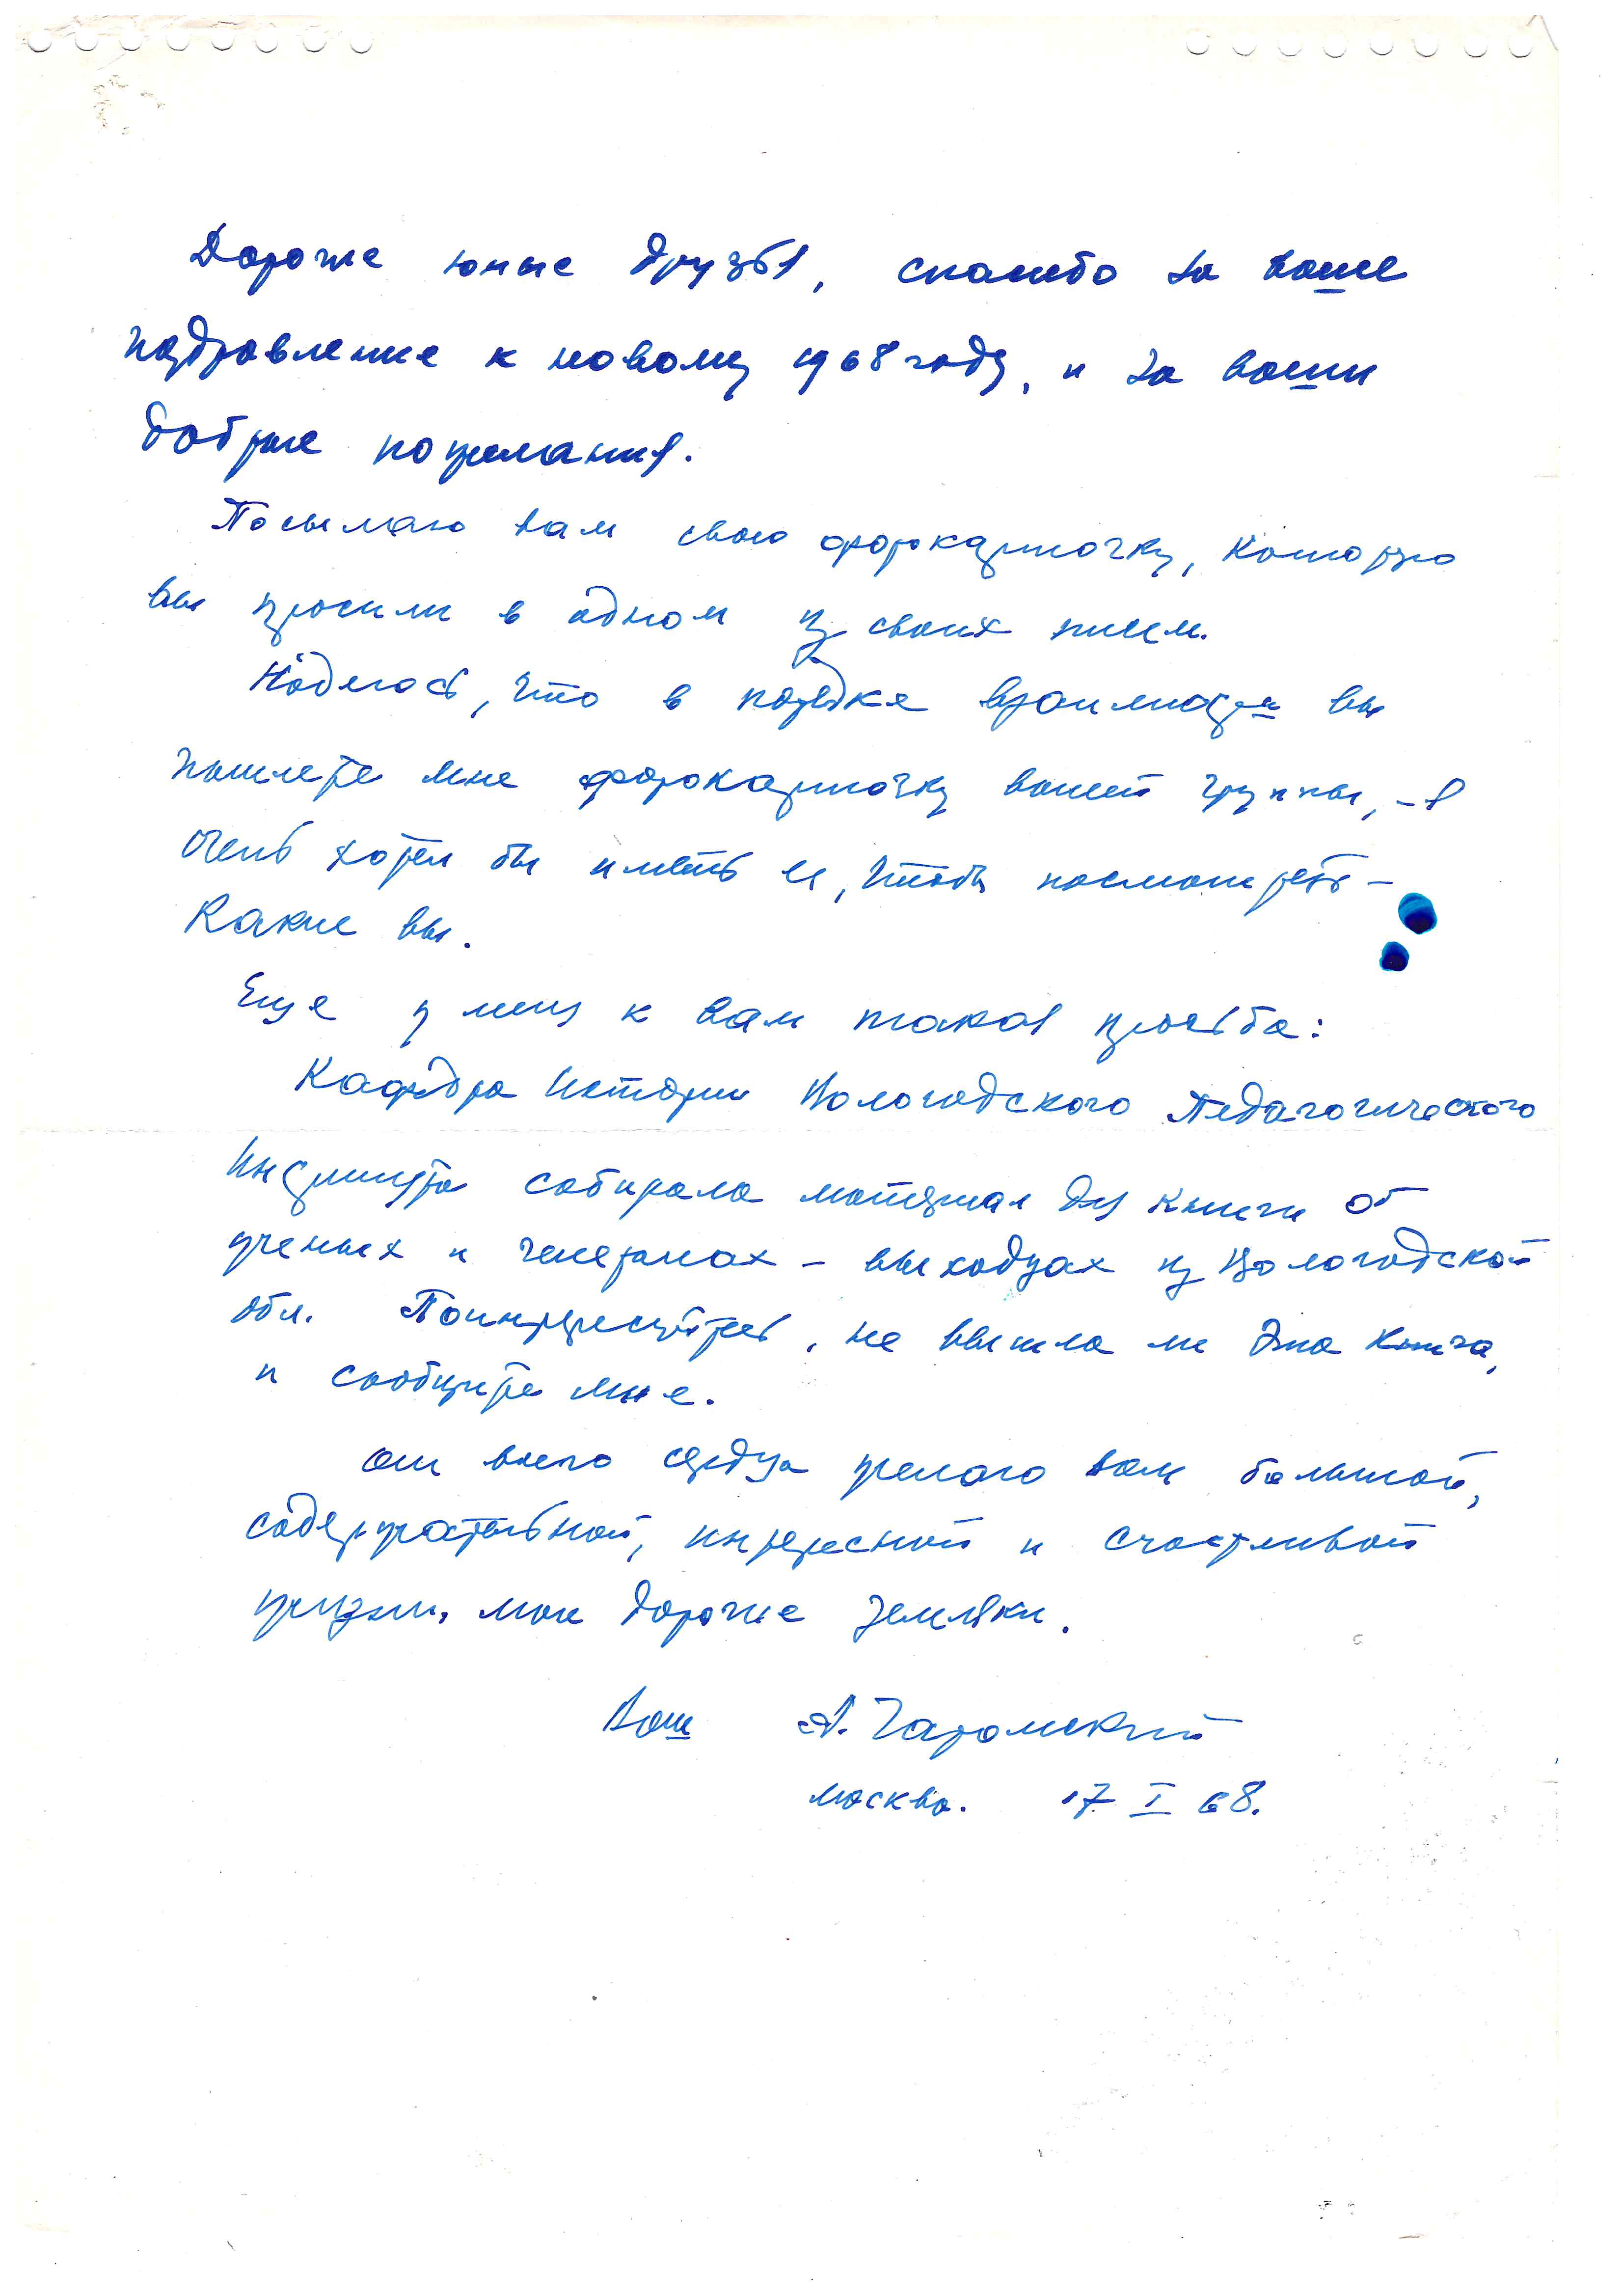 Дорогие юные друзья, спасибо за ваше
поздравление к новому 1968 году, и за ваши
добрые пожелания.
Посылаю вам свою фотокарточку, которую
вы просили в одном из своих писем.
Надеюсь, что в порядке взаимности вы
пошлете мне фотокарточку вашей группы, – я
очень хотел бы иметь ее, чтобы посмотреть –
какие вы.
Еще у меня к вам такая просьба:
Кафедра Истории Вологодского Педагогического
Института собирала материал для книги об
ученых и генералах – выходцах из Вологодской
обл. Поинтересуйтесь, не вышла ли эта книга,
и сообщите мне.
От всего сердца желаю вам большой,
содержательной, интересной и счастливой
жизни, мои дорогие земляки.
Ваш А. Чаромский
Москва. 17 I 68.